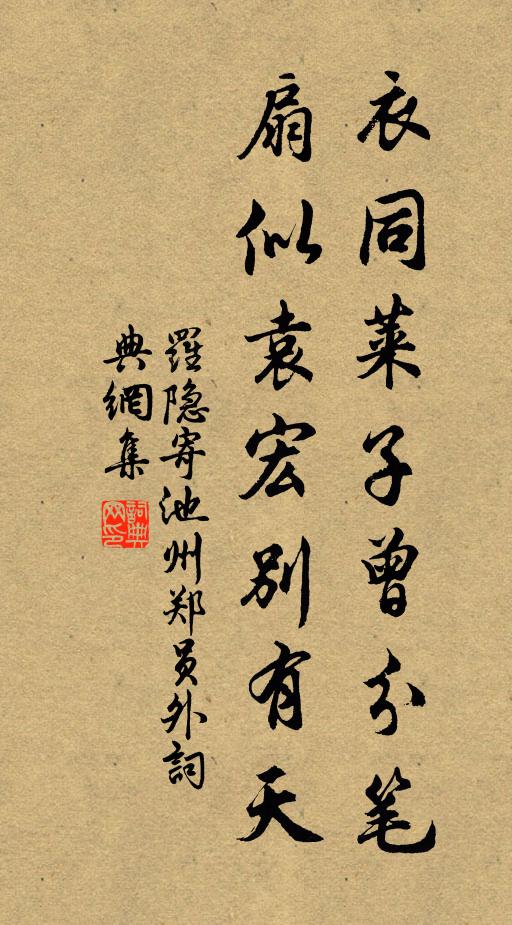 衣同莱子曾分笔
扇似袁宏别有天
羅隐寄池州郑员外詞
典網集
詞典
网印